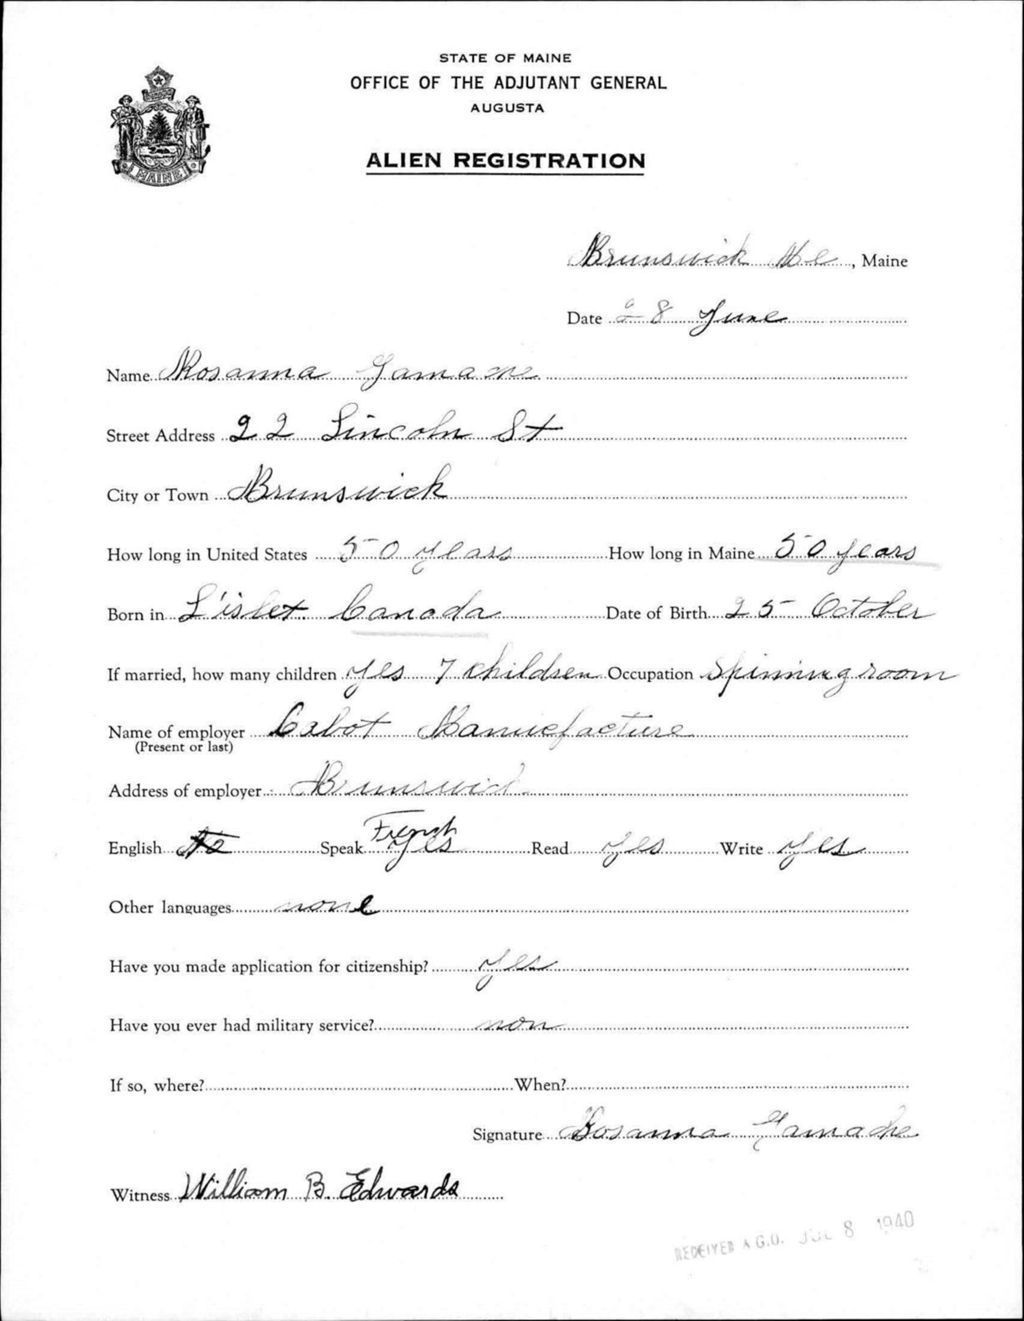 STATE OF MAINE
OFFICE OF THE ADJUTANT GENERAL
AUGUSTA
ALIEN REGISTRATION
MAINE
Brunswick Me, Maine
Date 28 June
Name Rosanna Gamache
Street Address 22 Lincoln St
City or Town Brunswick
How long in United States 50 years How long in Maine 50 years
Born in L'islet Canada Date of Birth 25 October
If married, how many children yes 7 children Occupation Spinning room
Name of employer Cabot Manuefacture
(Present or last)
Address of employer Brunswick
English No Speak French yes Read yes Write yes
Other languages none
Have you made application for citizenship? yes
Have you ever had military service? non
If so, where? When?
Signature Rosanna Gamache
Witness William B. Edwards
RECEIVED A.G.O. JUL 8 1940